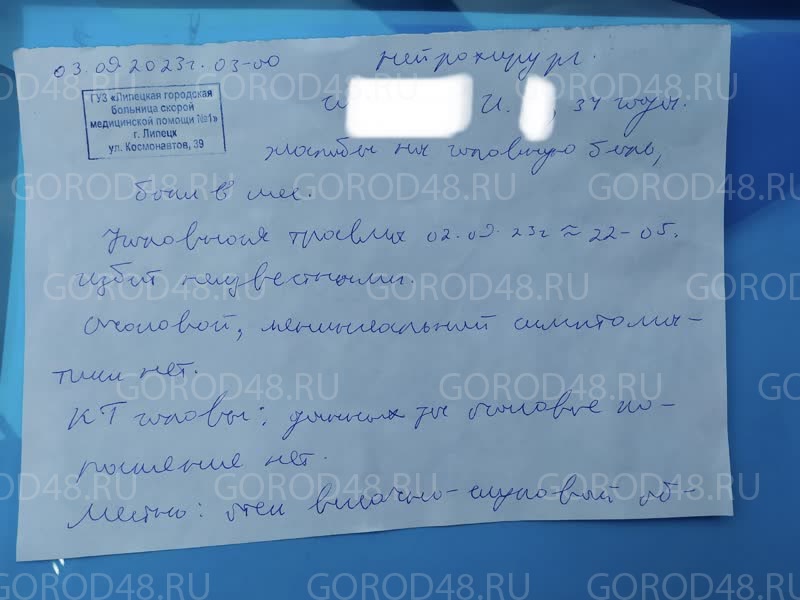 03.09.2023г. 03-00 нейрохирург.
ГУЗ «Липецкая городская
больница скорой
медицинской помощи №1»
г. Липецк
ул. Космонавтов, 39
И. , 34 года.
жалобы на головную боль,
боли в шее.
Уголовная травма 02.09.23г ≈ 22-05.
избит неизвестными.
очаговой, менингеальной симптома-
тики нет.
КТ головы: данных за очаговое по-
ражение нет.
Местно: отек височно-скуловой об-
GOROD48.RU